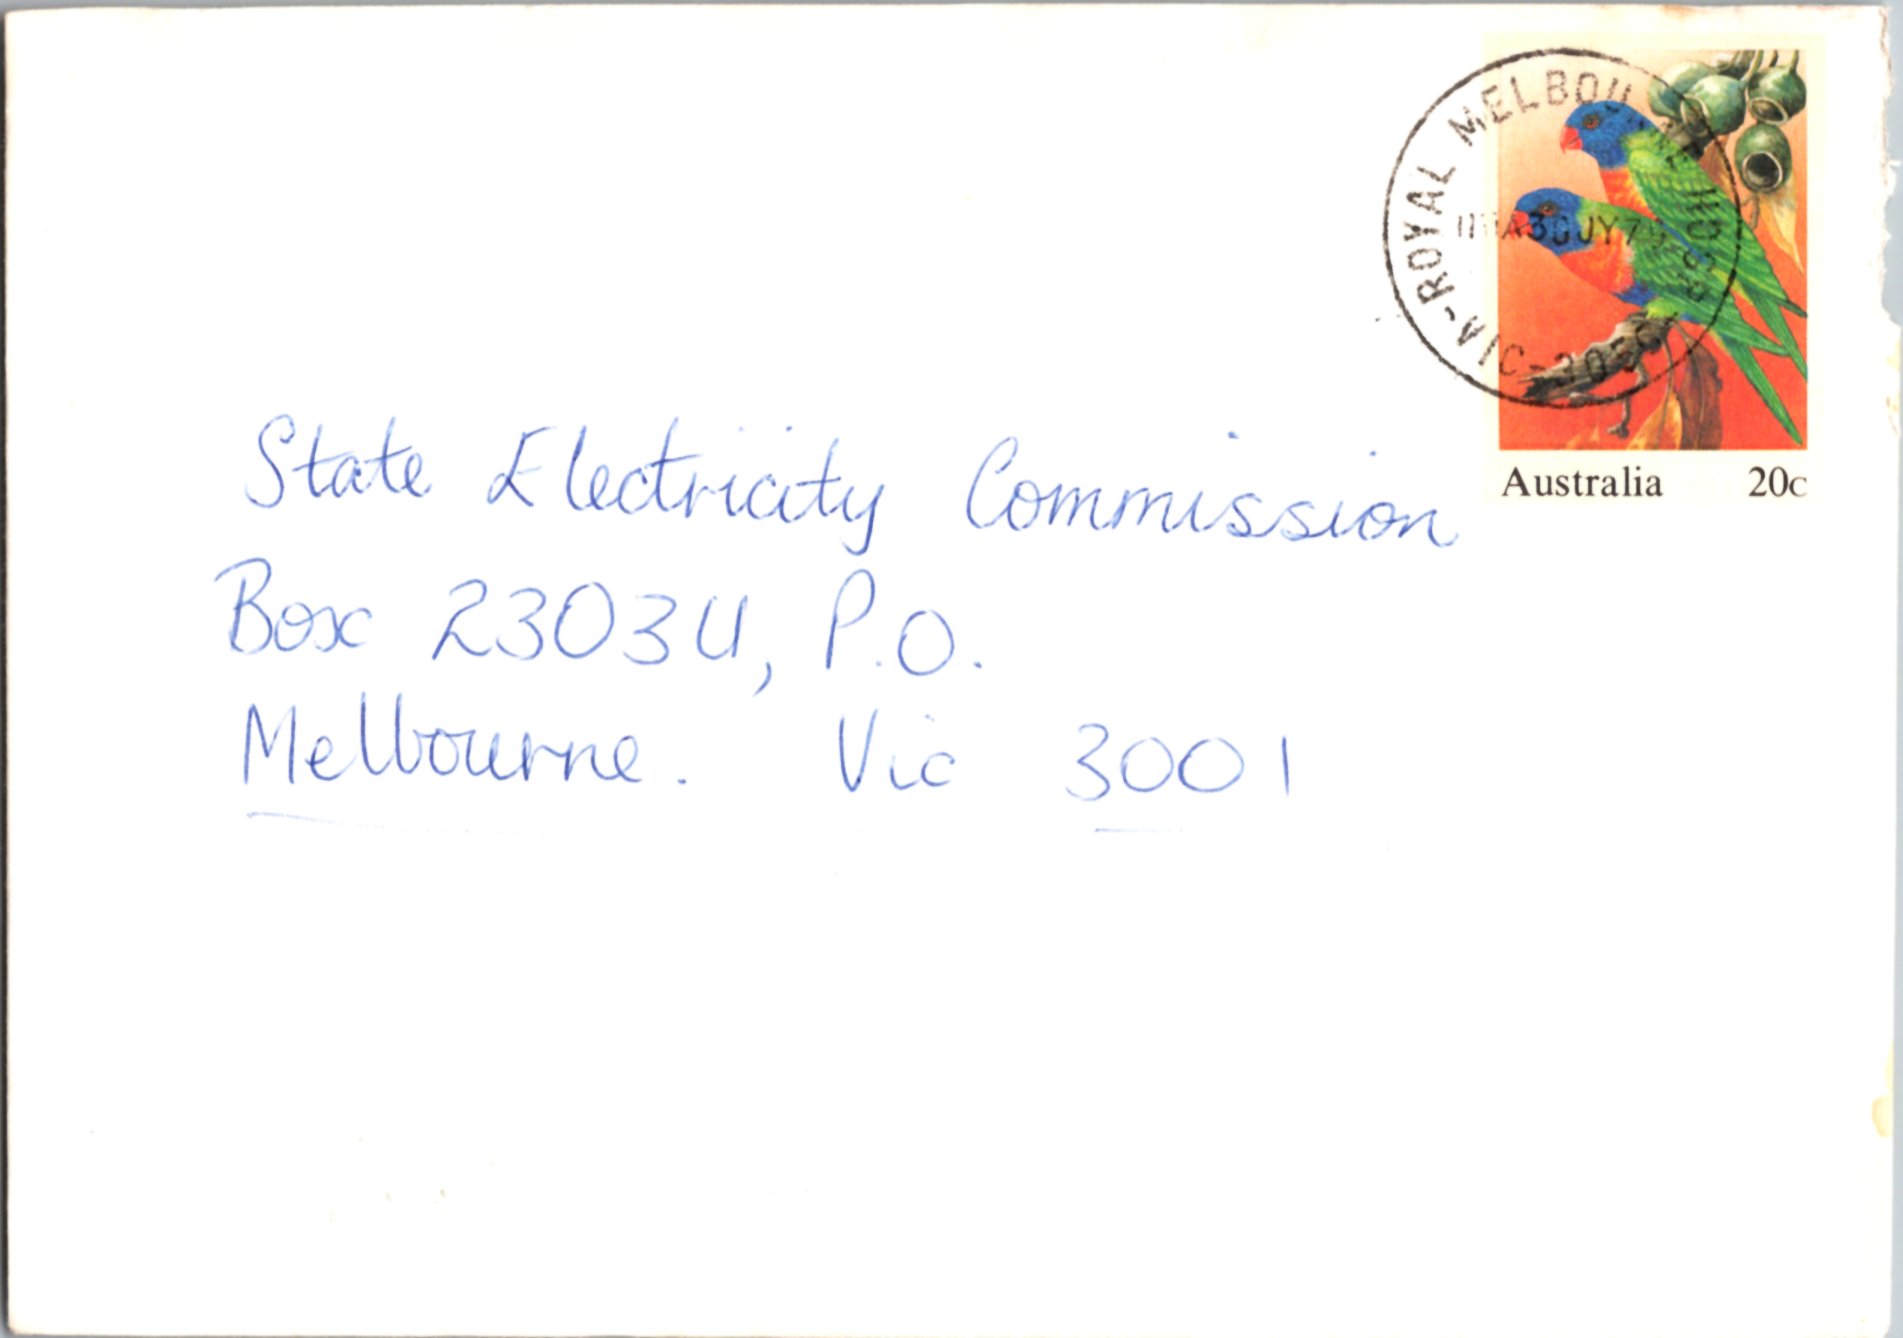 ROYAL MELBOURNE HOSP
VIC-3050
A30JY7
Australia 20c
State Electricity Commission
Box 2303U, P.O.
Melbourne. Vic 3001